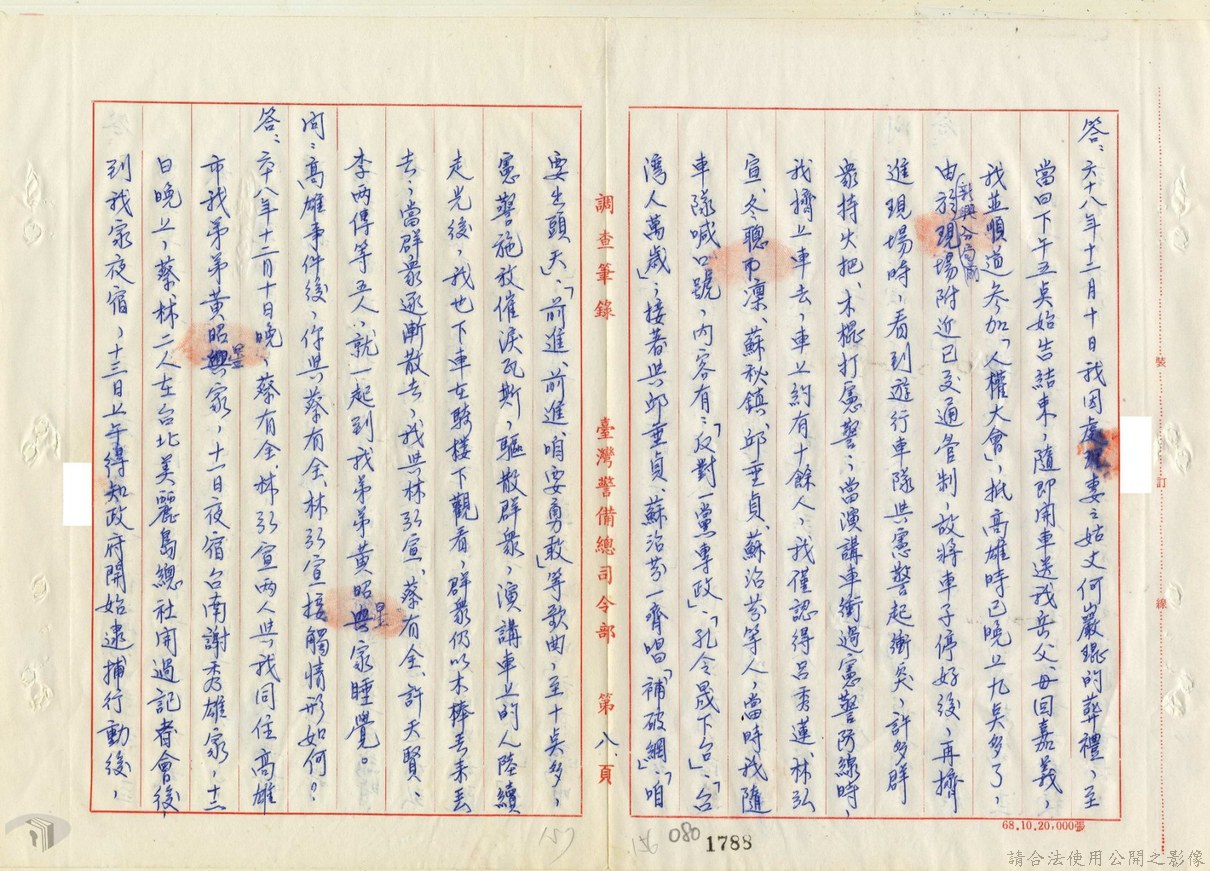 答：六十八年十二月十日我因處理妻之姑丈何巖錕的葬禮，至
當回下午五点始告結束，隨即開車送我岳父、母回嘉義，
我並順道參加「人權大會」，抵高雄時已晚上九点多了，
由於新興分局前現場附近已交通管制，故將車子停好後，再擠
進現場時，看到遊行車隊與憲警起衝突，許多群
衆持火把、木棍打憲警；當演講車衝過憲警防線時，
我擠上車去，車上約有十餘人，我僅認得呂秀蓮、林弘
宣、冬聰凛、蘇秋鎮、邱垂貞、蘇治芬等人，當時我隨
車隊喊口號，內容有：「反對一黨專政」、「孔令晟下台」、「台
灣人萬歲」；接著與邱垂貞、蘇治芬一齊唱「補破網」、「咱
要出頭天」、「前進、前進咱要勇敢」等歌曲，至十点多，
憲警施放催淚瓦斯，驅散群衆，演講車上的人陸續
走光後，我也下車在騎樓下觀看，群衆仍以木棒丟來丟
去，當群衆逐漸散去，我與林弘宣、蔡有全、許天賢、
李兩傳等五人，就一起到我弟弟黃昭星家睡覺。
問：高雄事件後，你與蔡有全、林弘宣接觸情形如何？
答：六十八年十二月十日晚，蔡有全、林弘宣兩人與我同住高雄
市我弟弟黃昭星家，十一日夜宿台南謝秀雄家，十二
日晚上，蔡林二人在台北美麗島總社開過記者會後，
到我家夜宿，十三日上午得知政府開始逮捕行動後，
調查筆錄 臺灣警備總司令部 第八頁
裝訂線
68.10.20,000張
156 080 1788
157
請合法使用公開之影像